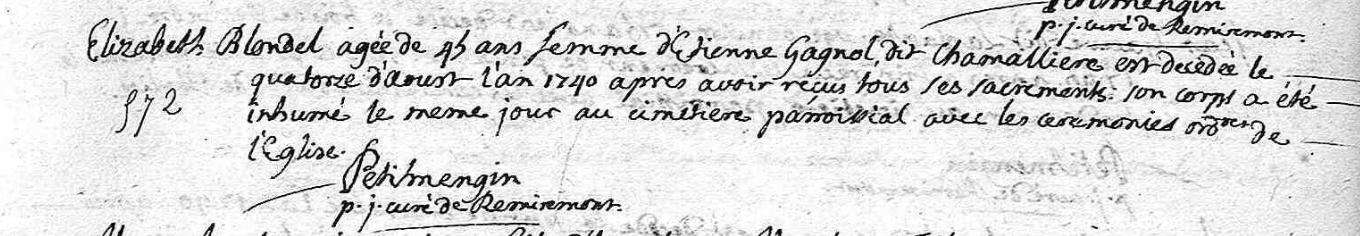 Petitmengin
p. j. curé de Remiremont.
Elizabeth Blondel agée de 45 ans femme d'Etienne Gagnol, dit Chamalliere est decédée le
quatorze d'aoust l'an 1740 apres avoir reçus tous ses sacrements. son corps a été
572
inhumé le meme jour au cimetiere parroissial avec les ceremonies ord^res de
l'Eglise.
Petitmengin
p. j. curé de Remiremont.